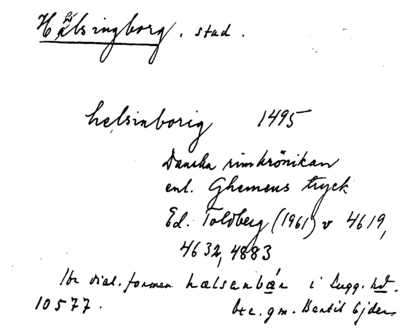 Hälsingborg, stad.
helsinborig 1495
Danska rimkrönikan
enl. Ghemens tryck
Ed. Toldberg (1961) v 4619,
4632, 4883
dial. formen hælsenbár i Lugg. hd.
10577. gm. Bertil Ejder